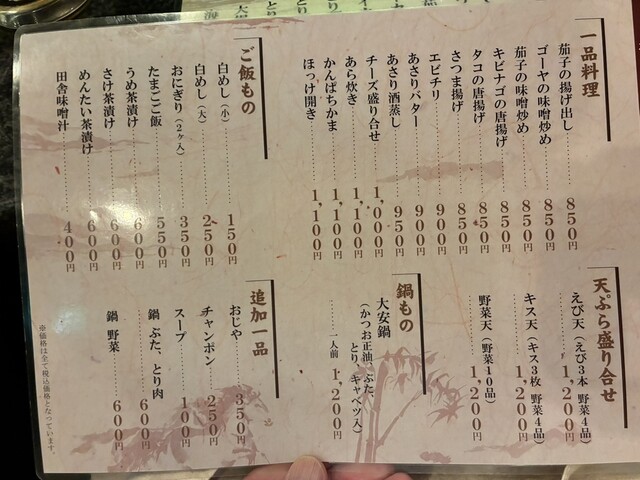 一品料理
茄子の揚げ出し 850円
ゴーヤの味噌炒め 850円
茄子の味噌炒め 850円
キビナゴの唐揚げ 850円
タコの唐揚げ 850円
さつま揚げ 850円
エビチリ 900円
あさりバター 900円
あさり酒蒸し 950円
チーズ盛り合せ 1,000円
あら炊き 1,100円
かんぱちかま 1,100円
ほっけ開き 1,100円
ご飯もの
白めし(小) 150円
白めし(大) 250円
おにぎり(2ヶ入) 350円
たまごご飯 550円
うめ茶漬け 600円
さけ茶漬け 600円
めんたい茶漬け 600円
田舎味噌汁 400円
天ぷら盛り合せ
えび天(えび3本 野菜4品) 1,200円
キス天(キス3枚 野菜4品) 1,200円
野菜天(野菜10品) 1,200円
鍋もの
大安鍋
(かつお正油、ぶた、
とり、キャベツ入)
一人前 1,200円
追加一品
おじや 350円
チャンポン 250円
スープ 100円
鍋 ぶた、とり肉 600円
鍋 野菜 600円
※価格は全て税込価格となっています。